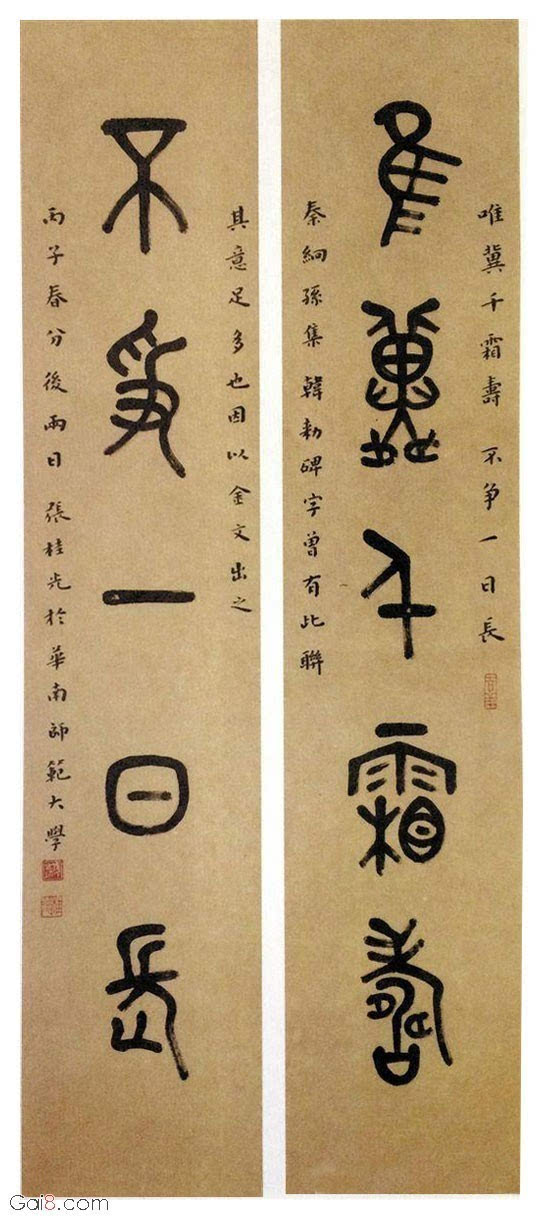 唯冀千霜壽
不爭一日長
唯冀千霜壽 不争一日長
秦絅孫集韓勑碑字曾有此聯
其意足多也因以金文出之
丙子春分後兩日張桂光於華南師範大學
Gai8.com